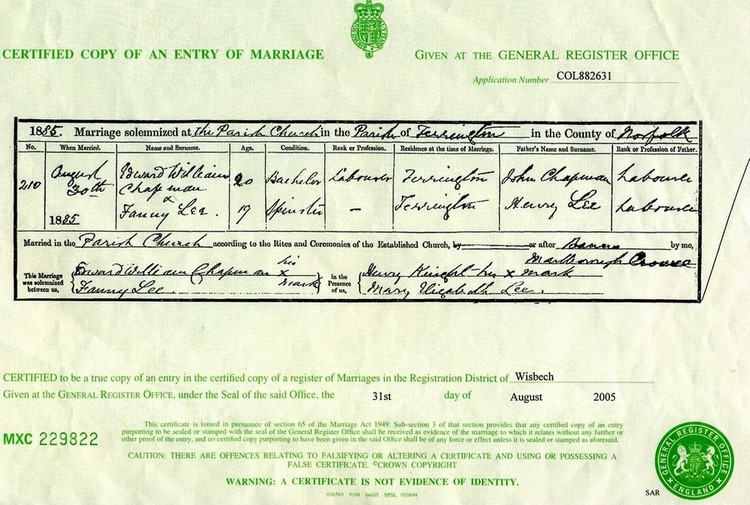 CERTIFIED COPY OF AN ENTRY OF MARRIAGE
GIVEN AT THE GENERAL REGISTER OFFICE
Application Number COL882631
1885. Marriage solemnized at the Parish Church in the Parish of Terrington in the County of Norfolk
No. When Married. Name and Surname. Age. Condition. Rank or Profession. Residence at the time of Marriage. Father's Name and Surname. Rank or Profession of Father.
210 August 30th 1885
Edward William Chapman 20 Bachelor Labourer Terrington John Chapman Labourer
x
Fanny Lee. 19 Spinster — Terrington Henry Lee Labourer
Married in the Parish Church according to the Rites and Ceremonies of the Established Church, by or after Banns by me,
Marlborough Crosse
This Marriage was solemnized between us, Edward William Chapman his x mark
Fanny Lee.
in the Presence of us, Henry his x mark
Mary Elizabeth Lee.
CERTIFIED to be a true copy of an entry in the certified copy of a register of Marriages in the Registration District of Wisbech
Given at the GENERAL REGISTER OFFICE, under the Seal of the said Office, the 31st day of August 2005
MXC 229822
This certificate is issued in pursuance of section 65 of the Marriage Act 1949. Sub-section 3 of that section provides that any certified copy of an entry
purporting to be sealed or stamped with the seal of the General Register Office shall be received as evidence of the marriage to which it relates without any further or
other proof of the entry, and no certified copy purporting to have been given in the said Office shall be of any force or effect unless it is sealed or stamped as aforesaid.
CAUTION: THERE ARE OFFENCES RELATING TO FALSIFYING OR ALTERING A CERTIFICATE AND USING OR POSSESSING A
FALSE CERTIFICATE ©CROWN COPYRIGHT
WARNING: A CERTIFICATE IS NOT EVIDENCE OF IDENTITY.
036561 9198 04/05 SPSL 012694
SAR
GENERAL REGISTER OFFICE
ENGLAND